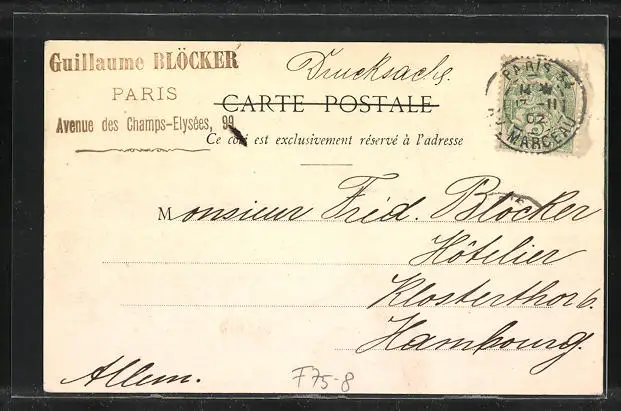 Guillaume BLÖCKER
PARIS
Avenue des Champs-Elysées, 99
Drucksache.
CARTE POSTALE
Ce coté est exclusivement réservé à l'adresse
PARIS 34
11
02
MARCEAU
Monsieur Fréd. Blöcker
Hôtelier
Klosterthor 6.
Hambourg.
Allem.
F75-8